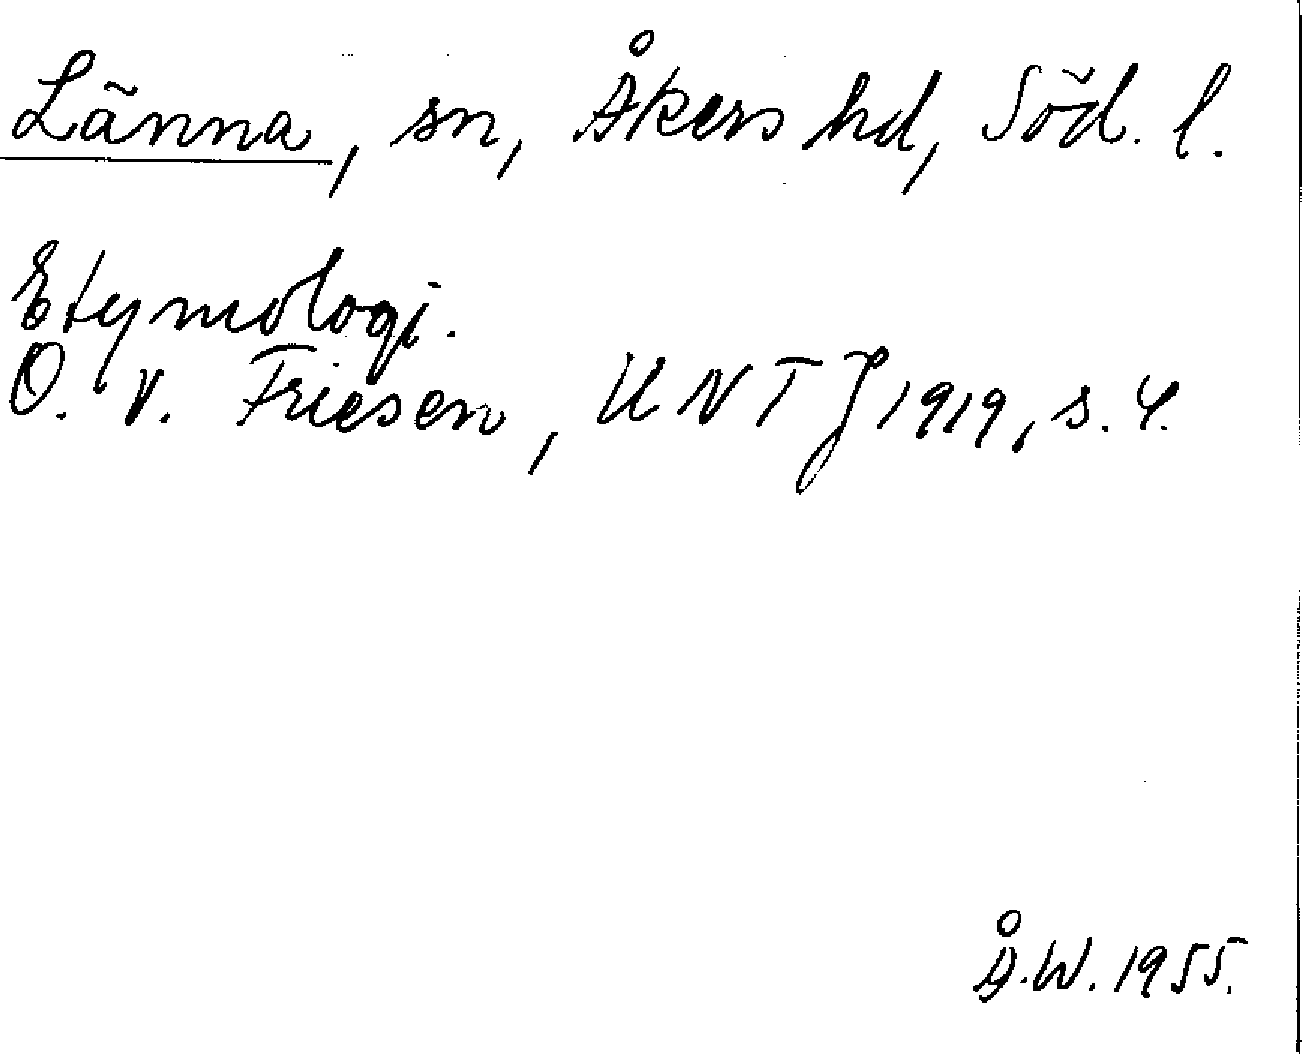 Länna, sn, Åkers hd, Söd. l.
Etymologi.
O. v. Friesen, UNT J 1919, s. 4.
Å.W. 1955.